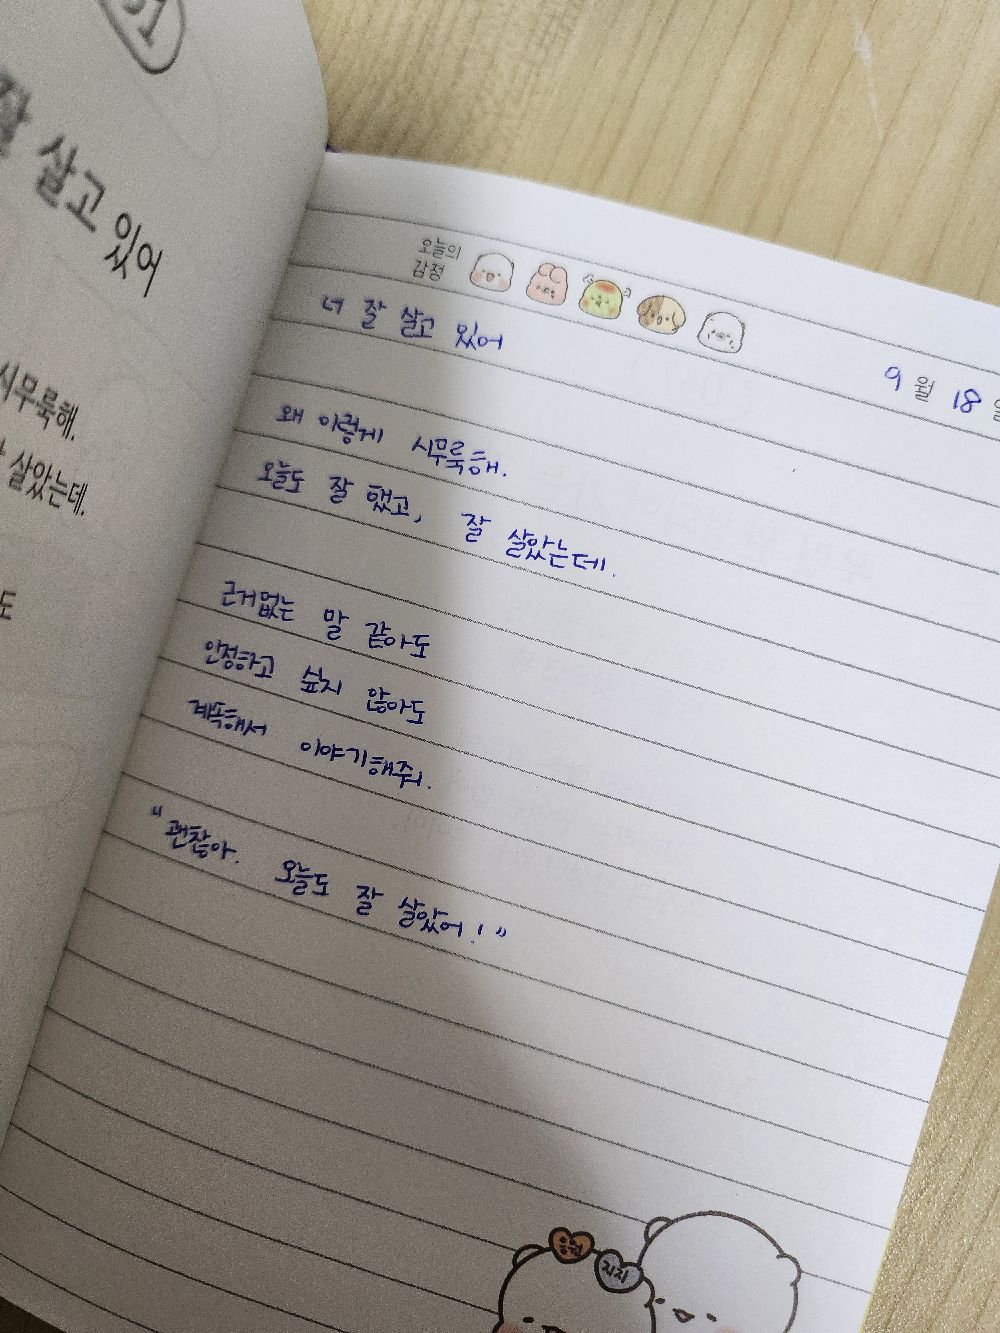 살고 있어
시무룩해.
살았는데.
도
오늘의
감정
9월 18일
너 잘 살고 있어
왜 이렇게 시무룩해.
오늘도 잘 했고, 잘 살았는데.
근거없는 말 같아도
인정하고 싶지 않아도
계속해서 이야기해줘.
"괜찮아. 오늘도 잘 살았어!"
응원
지지